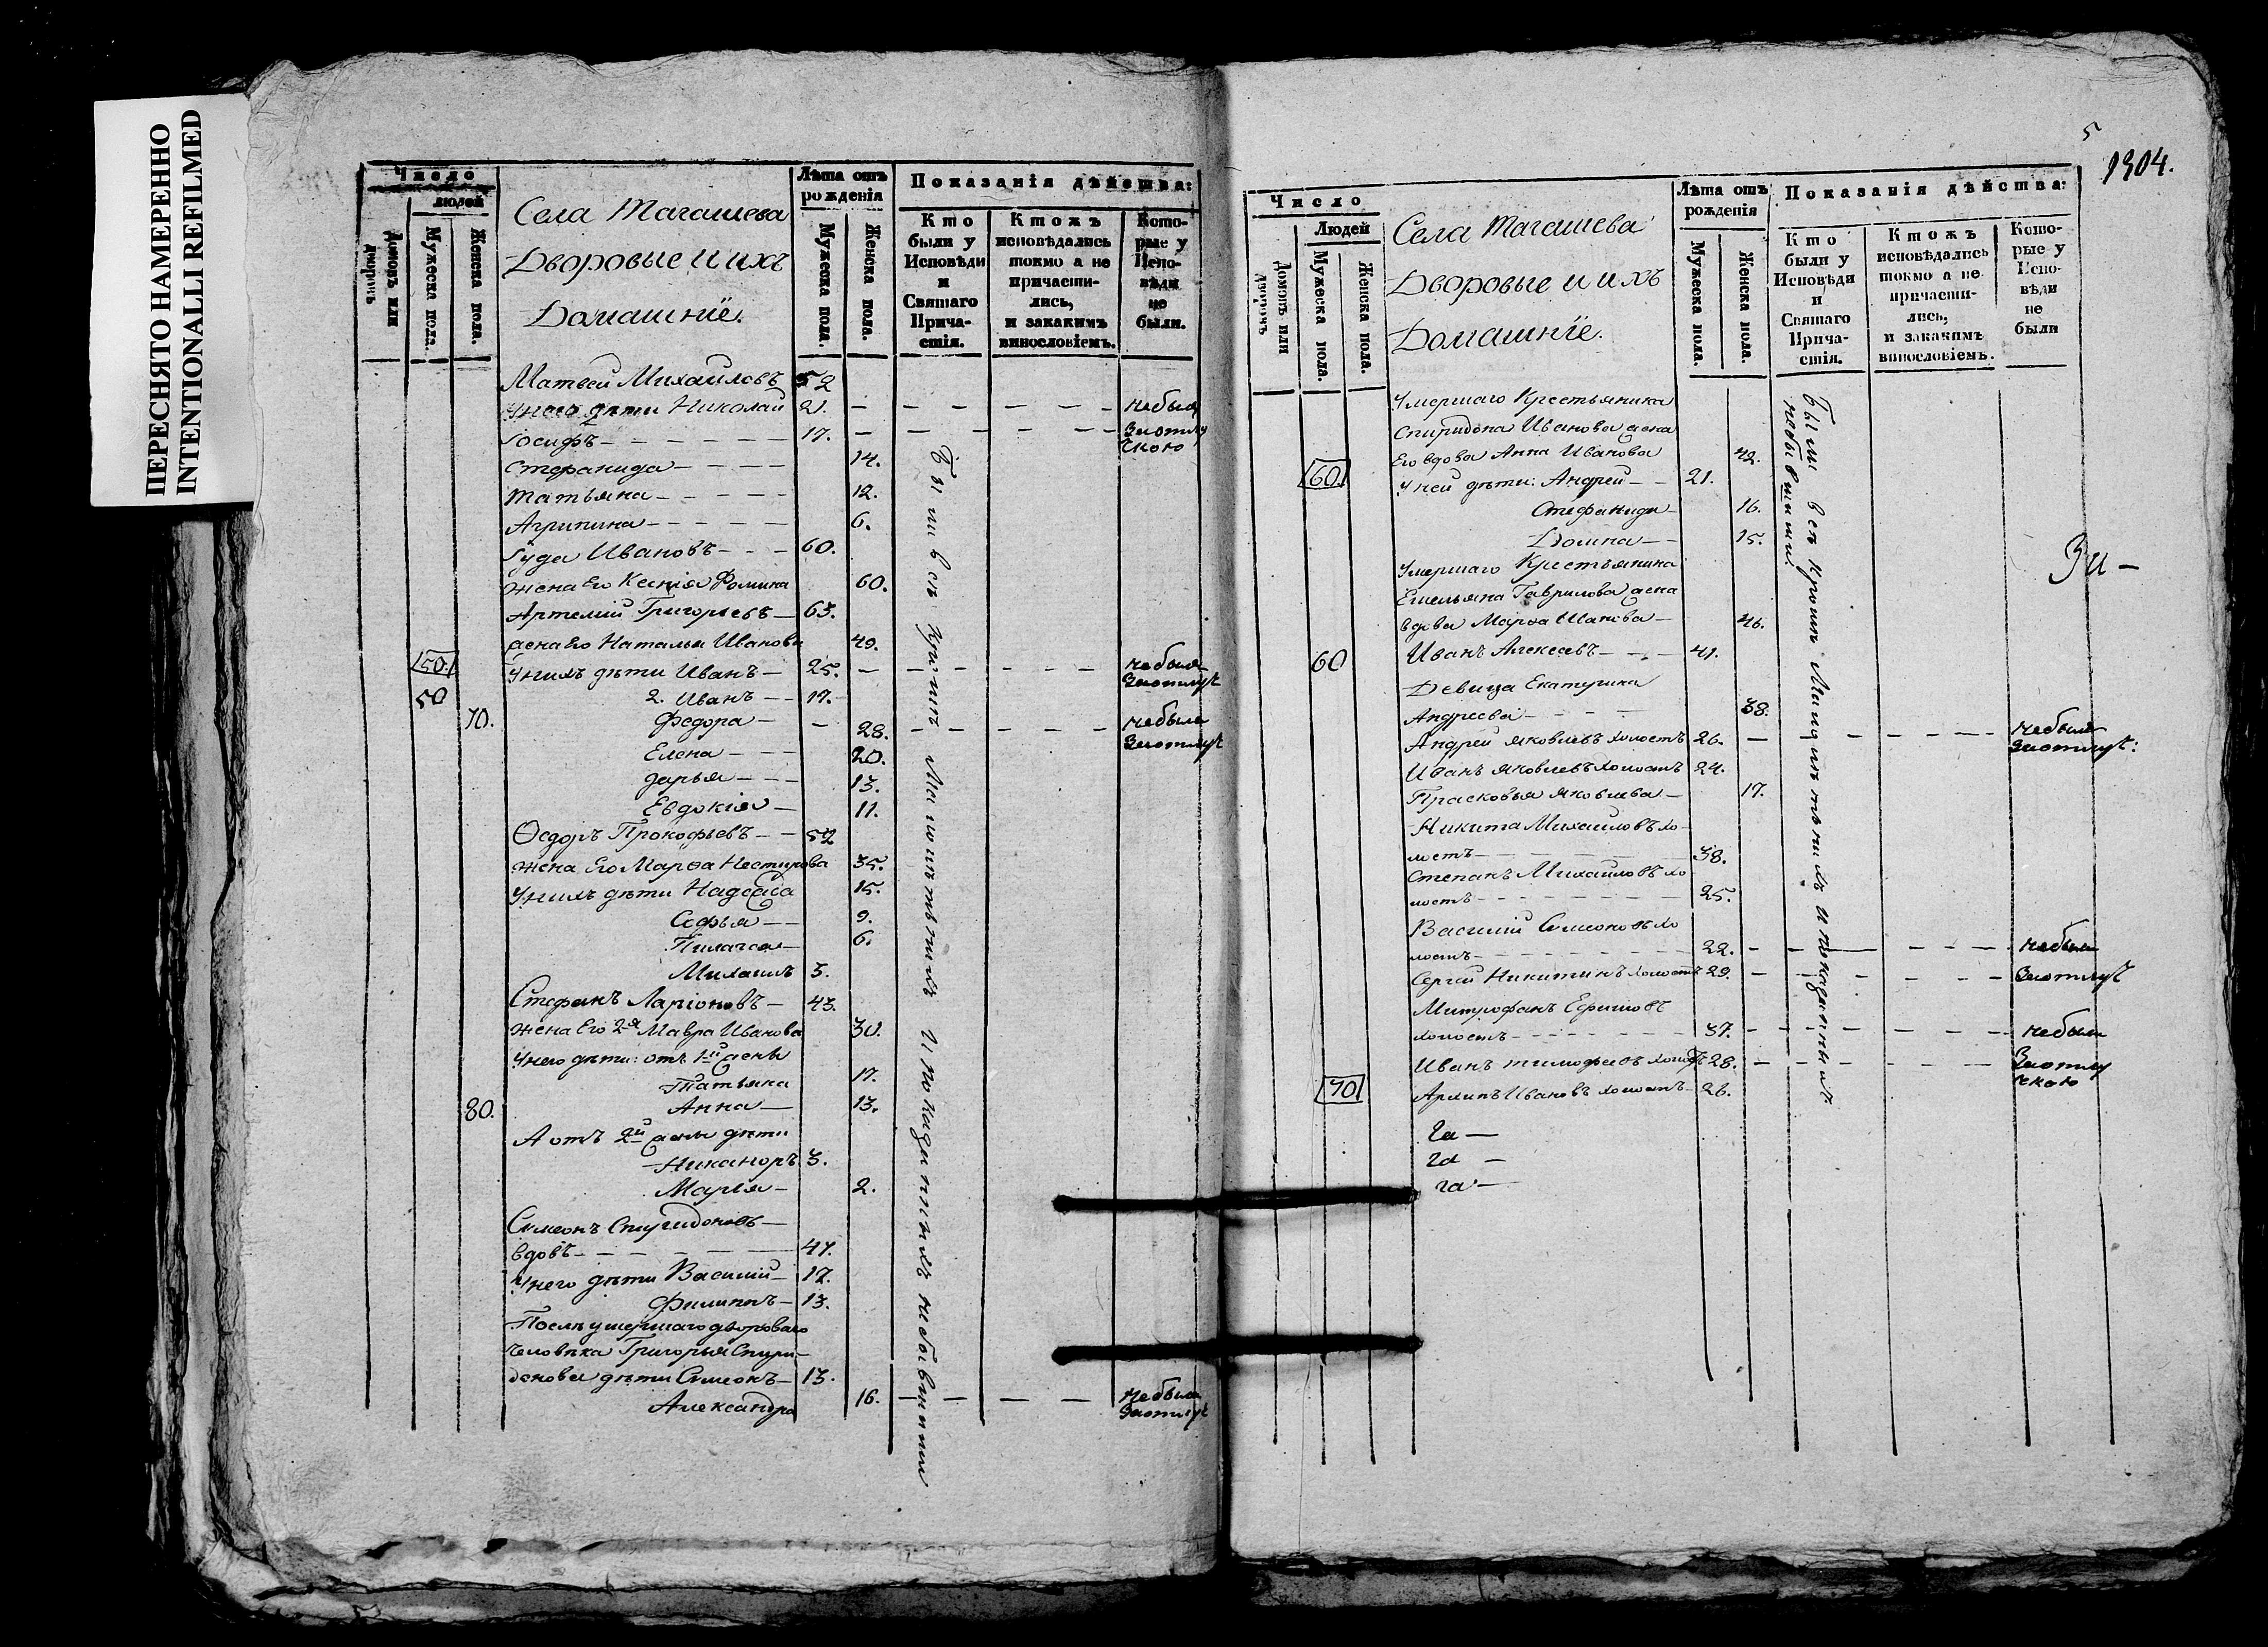 ПЕРЕСНЯТО НАМЕРЕННО
INTENTIONALLI REFILMED
Число
людей
Домовъ или дворовъ
Мужеска пола.
Женска пола.
Села Тагашева
Дворовые и ихъ
Домашнїе.
Лѣта отъ рожденїя
Мужеска пола.
Женска пола.
Показанїя дѣйства:
Кто были у Исповѣди и Святаго Прича-стїя.
Ктожъ исповѣдались токмо а не причасти-лись, и закакимъ винословїемъ.
Кото-рые у Испо-вѣди не были.
Матвей Михайловъ 52
У него дѣти Николай 21. — — — — — — небыли
Іосифъ — — — — — 17. — — — — — — Заотлу
чкою
Стефанида — — — — 14.
Татьяна — — — — — 12.
Агрипина — — — — — 6.
Іуда Ивановъ — — — 60.
жена Его Ксенїя Фомина 60.
Артемїй Григорьевъ — 63.
жена Его Наталья Иванова 49.
50. У нихъ дѣти Иванъ — 25. — — — — — — небыли
Заотлуч
50 2. Иванъ — — 17.
70. Федора — — 28. — — — — — небыла
Заотлуч
Елена — — — 20.
дарья — — — 13.
Евдокїя — 11.
Ѳедоръ Прокофьевъ — — 52
жена Его Марѳа Нестирова 35.
У нихъ дѣти Надежда 15.
Софья — — 9.
Пилагея — 6.
Михаилъ 3.
Стефанъ Ларїоновъ — 43.
жена Его 2я Мавра Иванова 30.
У него дѣти: отъ 1й жены
Татьяна 17.
80. Анна — 13.
А отъ 2й жены дѣти
Никаноръ 3.
Марья — 2.
Симеонъ Спиридоновъ —
вдовъ — — — — — 47.
У него дѣти Василїй — 17.
Филиппъ — 13.
Послѣ умершаго двороваго
человѣка Григорья Спири-
донова дѣти Симеонъ — 13.
Александра 16. — — — — небыла
Заотлуч
Были всѣ кромѣ Малолѣтнихъ и показанныхъ небывшими
5
1304.
Число
Людей
Домовъ или дворовъ
Мужеска пола.
Женска пола.
Села Тагашева
Дворовые и ихъ
Домашнїе.
Лѣта отъ рожденїя
Мужеска пола.
Женска пола.
Показанїя дѣйства:
Кто были у Исповѣди и Святаго Прича-стїя.
Ктожъ исповѣдались токмо а не причасти-лись, и закакимъ винословїемъ.
Кото-рые у Испо-вѣди не были
Умершаго Крестьянина
Спиридона Иванова жена
Его вдова Анна Иванова 42.
60. У ней дѣти: Андрей — — 21.
Стефанида — 16.
Домна — — 15.
Умершаго Крестьянина
Емельяна Гаврилова жена
вдова Марѳа Иванова — 46.
60 Иванъ Алексеевъ — — — 41.
Девица Екатерина
Андреева — — — — 38.
Андрей яковлевъ холостъ 26. — — — — — — небыли
Заотлуч:
Иванъ яковлевъ холостъ 24.
Прасковья яковлева — 17.
Никита Михаиловъ хо-
лостъ — — — — — — 38.
Степанъ Михайловъ хо
лостъ — — — — — — 25.
Василїй Симеоновъ хо
лостъ — — — — — — 22. — — — — — — небыли
Сергей Никитинъ холостъ 29. — — — — — Заотлуч
Митрофанъ Ефимовъ
холостъ — — — — — 37. — — — — — — небыли
Иванъ тимофеевъ холостъ 28. — — — — — Заотлу
чкою
70 Архипъ Ивановъ холостъ — 26.
Были всѣ кромѣ Малолѣтнихъ и показанныхъ небывшими.